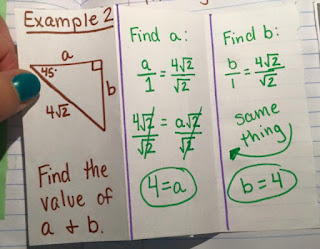 Example 2
a
45°
b
4√2
Find the
value of
a & b.
Find a:
a/1 = 4√2/√2
4√2/√2 = a√2/√2
4=a
Find b:
b/1 = 4√2/√2
same
thing
b=4